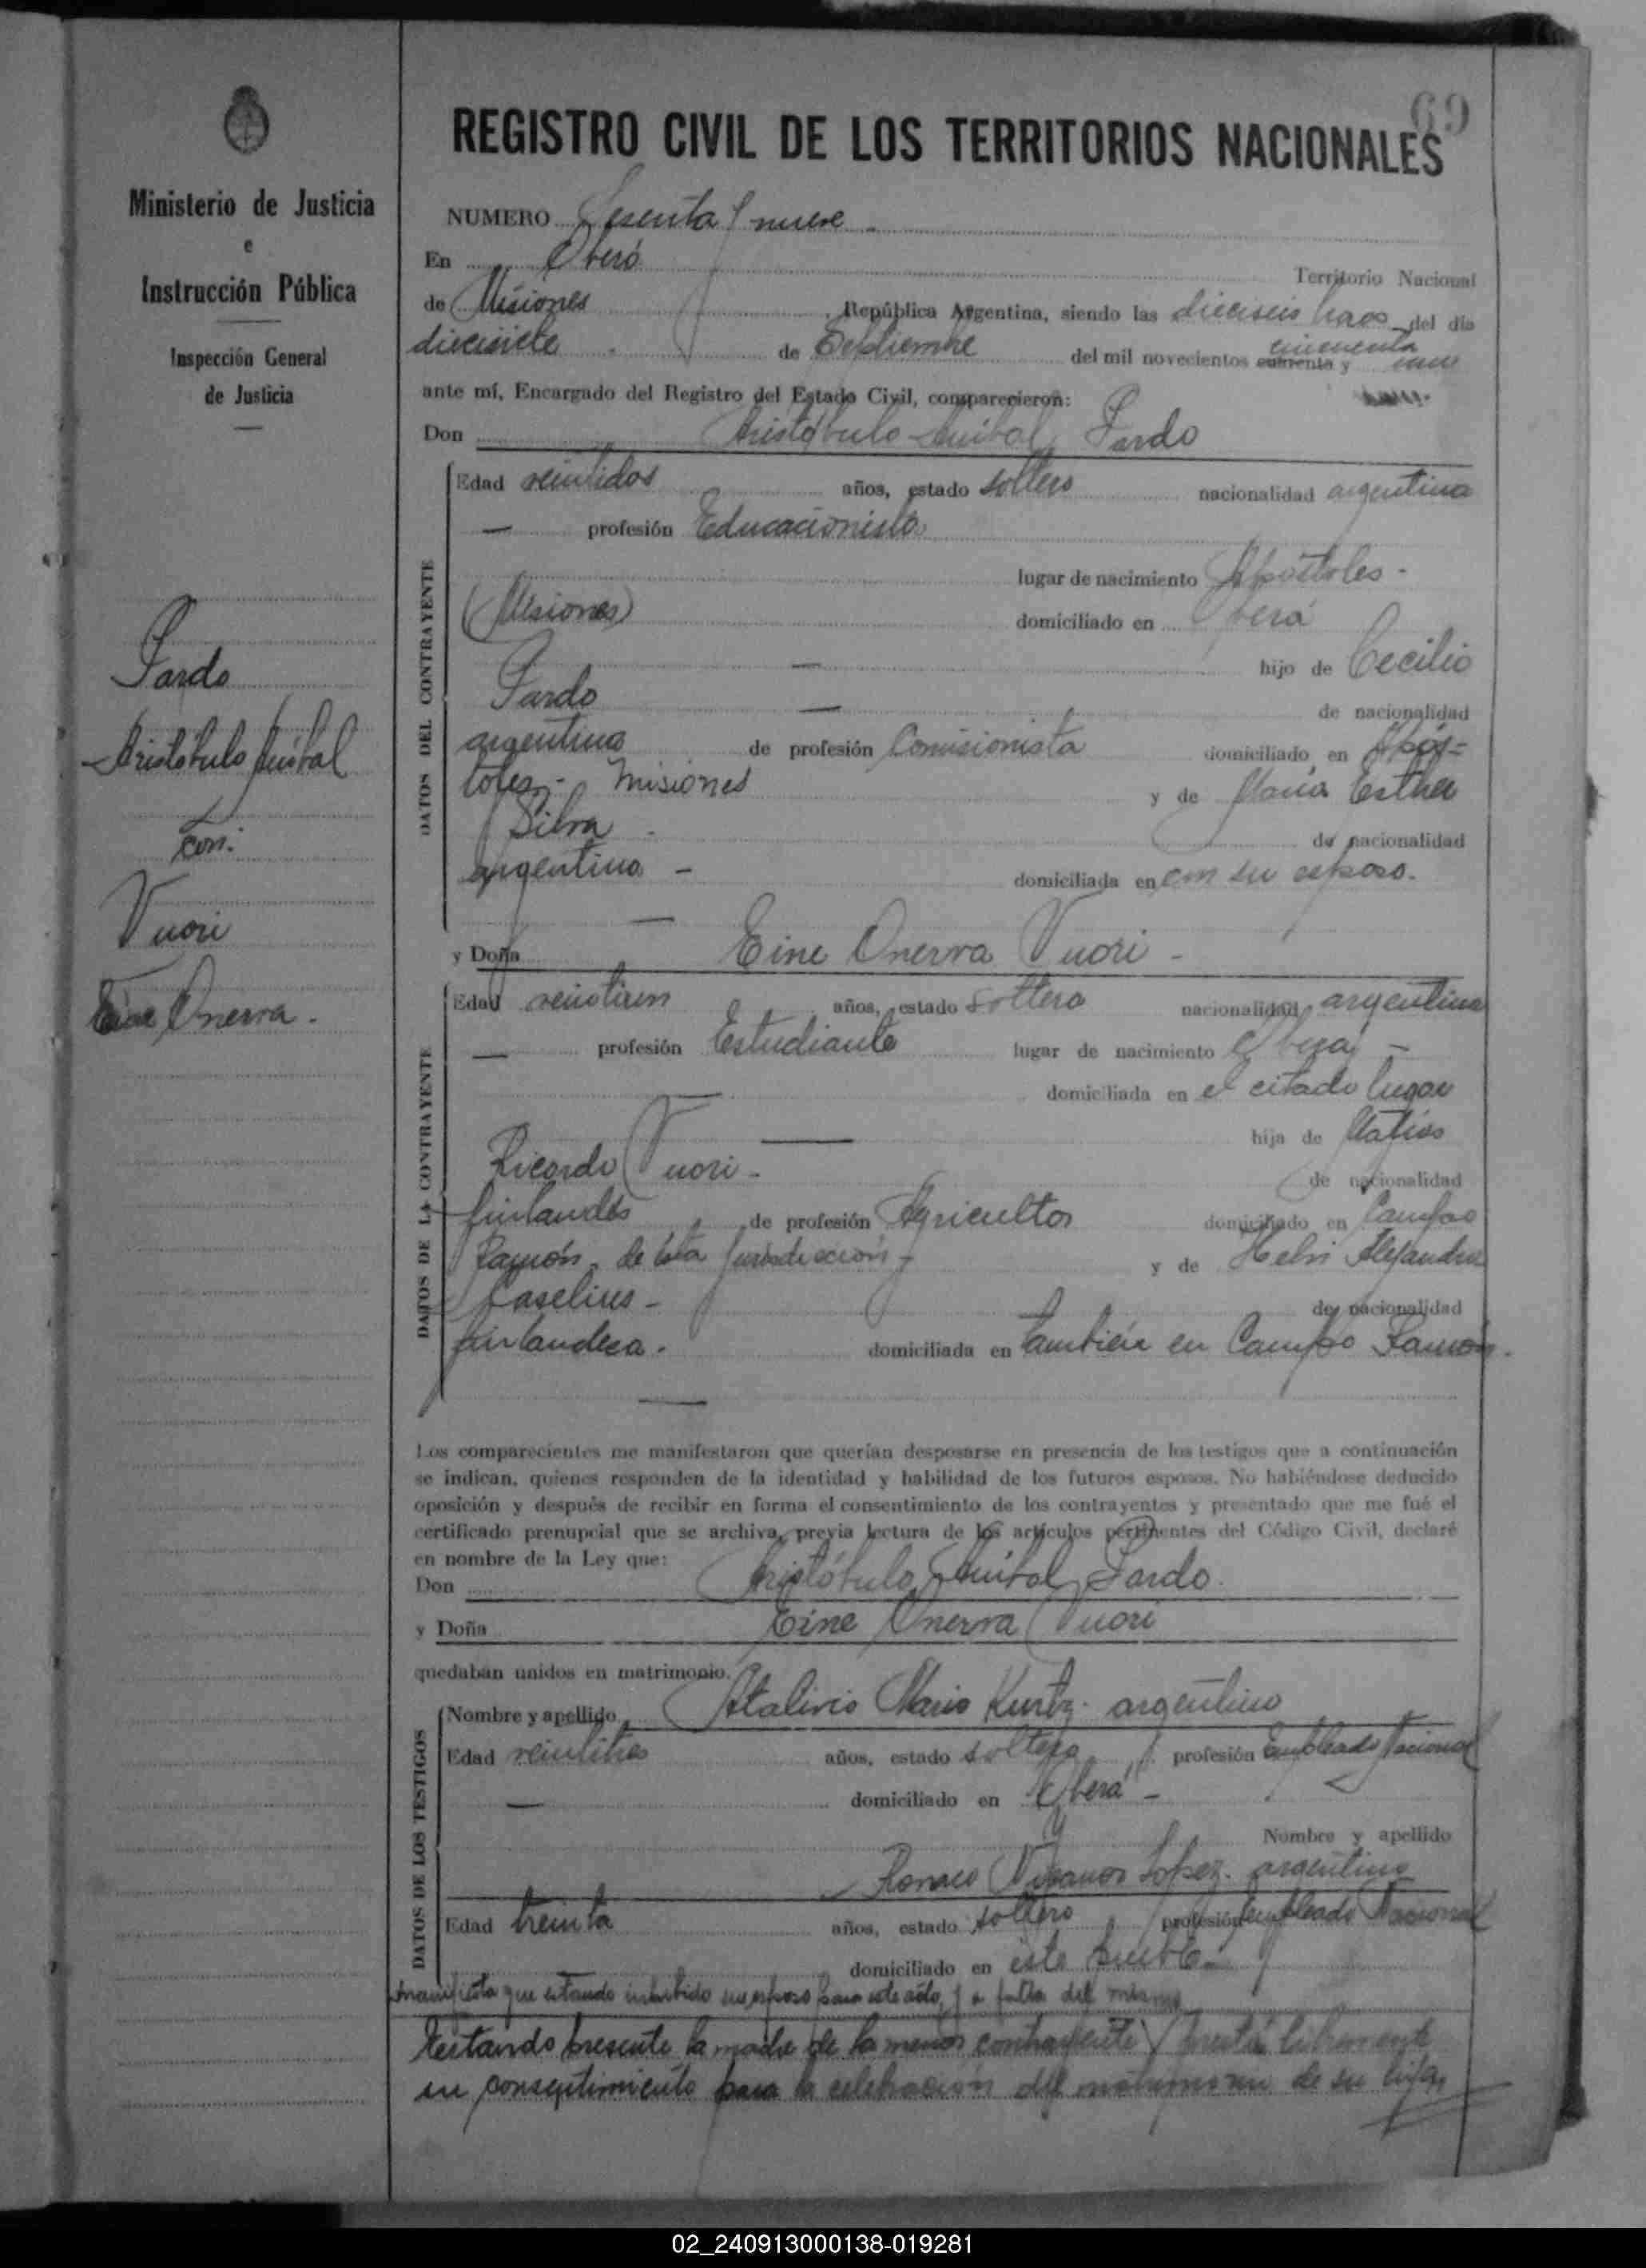 69
REGISTRO CIVIL DE LOS TERRITORIOS NACIONALES
Ministerio de Justicia
e
Instrucción Pública
Inspección General
de Justicia
Pardo
Aristóbulo Anibal
con:
Vuori
Eine Onerva.
NUMERO Sesenta y nueve.
En Oberá Territorio Nacional
de Misiones, República Argentina, siendo las dieciseis horas del día
diecisiete de Septiembre del mil novecientos cuarenta y cincuenta uno
ante mí, Encargado del Registro del Estado Civil, comparecieron:
Don Aristóbulo Anibal Pardo
DATOS DEL CONTRAYENTE
Edad veintidos años, estado soltero nacionalidad argentina
— profesión Educacionista
lugar de nacimiento Apóstoles -
(Misiones) domiciliado en Oberá
— hijo de Cecilio
Pardo — de nacionalidad
argentina de profesión Comisionista domiciliado en Após=
toles - Misiones y de María Esther
Silva. de nacionalidad
argentina - domiciliada en con su esposo.
y Doña Eine Onerva Vuori -
DATOS DE LA CONTRAYENTE
Edad veintiun años, estado soltera nacionalidad argentina
— profesión Estudiante lugar de nacimiento Oberá -
domiciliada en el citado lugar
— hija de Matias
Ricardo Vuori - de nacionalidad
finlandés de profesión Agricultor domiciliado en Campo
Ramón, de esta Jurisdicción - y de Helvi Alejandra
de nacionalidad
finlandesa. domiciliada en también en Campo Ramón.
Los comparecientes me manifestaron que querían desposarse en presencia de los testigos que a continuación
se indican, quienes responden de la identidad y habilidad de los futuros esposos. No habiéndose deducido
oposición y después de recibir en forma el consentimiento de los contrayentes y presentado que me fué el
certificado prenupcial que se archiva, previa lectura de los artículos pertinentes del Código Civil, declaré
en nombre de la Ley que:
Don Aristóbulo Anibal Pardo.
y Doña Eine Onerva Vuori
quedaban unidos en matrimonio.
DATOS DE LOS TESTIGOS
Nombre y apellido Atalivio Mario Kurtz - argentino
Edad veintitres años, estado soltero profesión Empleado Nacional
— domiciliado en Oberá -
y Nombre y apellido
López - argentino
Edad treinta años, estado soltero profesión Empleado Nacional
domiciliado en este pueblo.
manifiesta que estando su esposo para este acto, y a falta del mismo
Estando presente la madre de la menor contrayente presta libremente
su consentimiento para la celebración del matrimonio de su hija
02_240913000138-019281